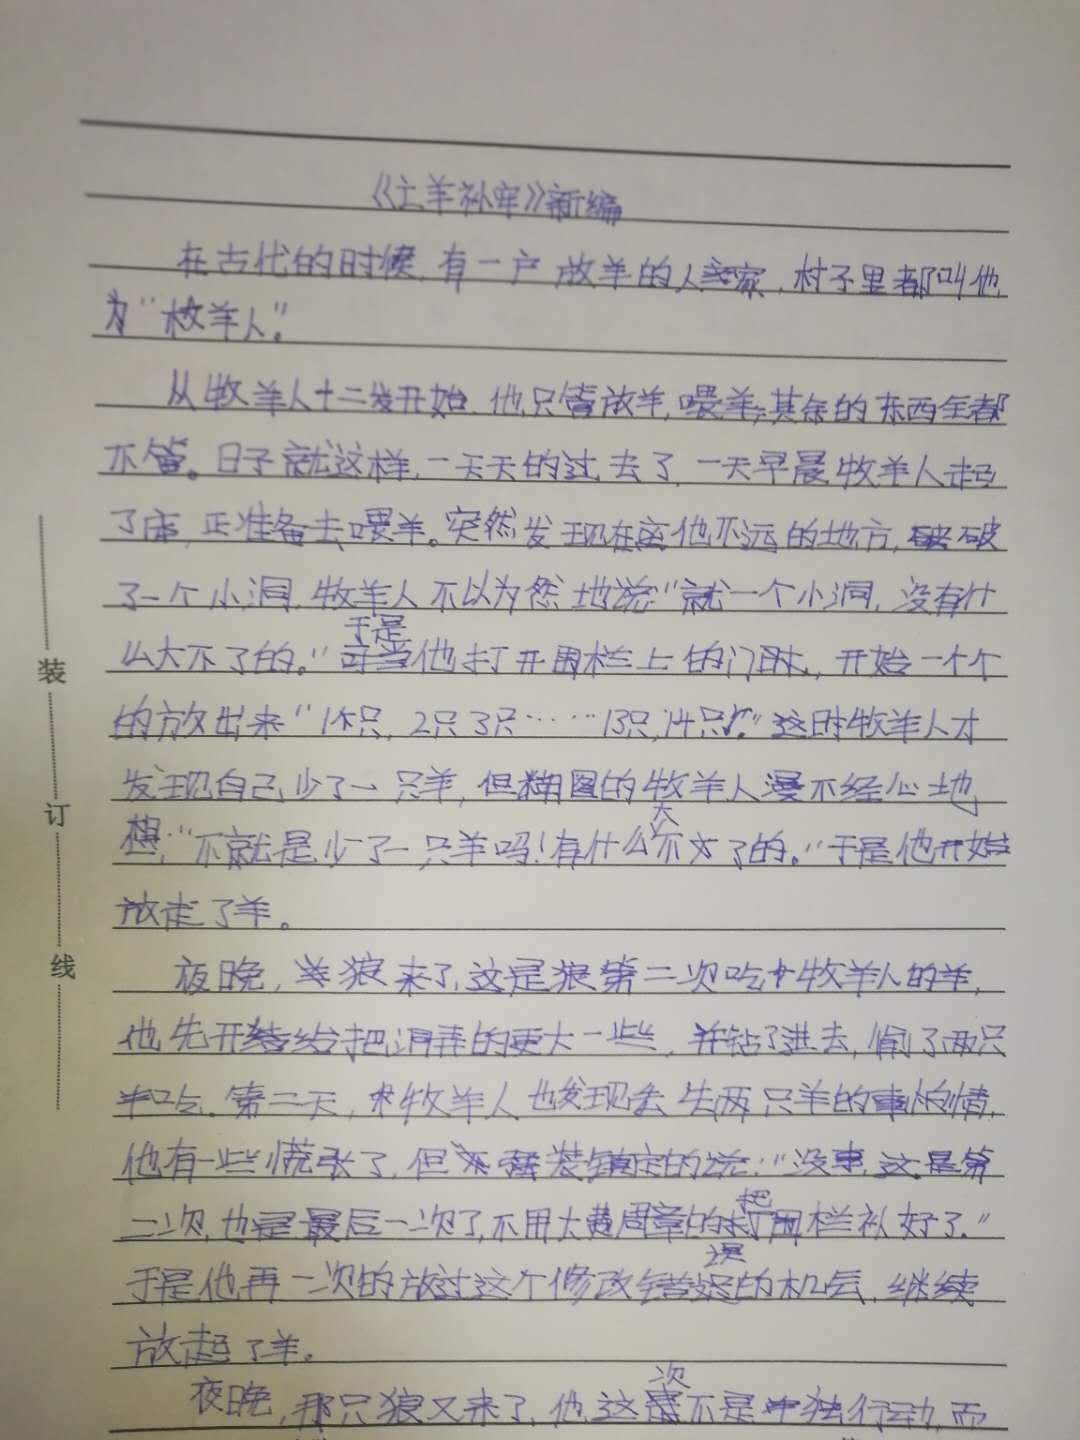 《亡羊补牢》新编
在古代的时候,有一户放羊的人家,村子里都叫他
为"牧羊人"。
从牧羊人十二岁开始,他只管放羊,喂羊,其余的东西全都
不管。日子就这样,一天天的过去了,一天早晨牧羊人起
了床,正准备去喂羊。突然发现在离他不远的地方,破
了一个小洞,牧羊人不以为然地说"就一个小洞,没有什
么大不了的。"于是他打开围栏上的门时,开始一个个
的放出来"1只,2只3只……13只,14只。"这时牧羊人才
发现自己少了一只羊,但糊图的牧羊人漫不经心地
想:"不就是少了一只羊吗!有什么大不了的。"于是他开始
放走了羊。
夜晚,狼来了,这是狼第二次吃牧羊人的羊,
他先开始把洞弄的更大一些,并钻了进去,偷了两只
羊吃。第二天,牧羊人也发现丢失两只羊的事情,
他有一些慌张了,但装镇定的说:"没事,这是第
二次,也是最后一次了,不用大费周章的把围栏补好了。"
于是他再一次的放过这个修改错误的机会,继续
放起了羊。
夜晚,那只狼又来了,他这次不是独行动,而
装
订
线